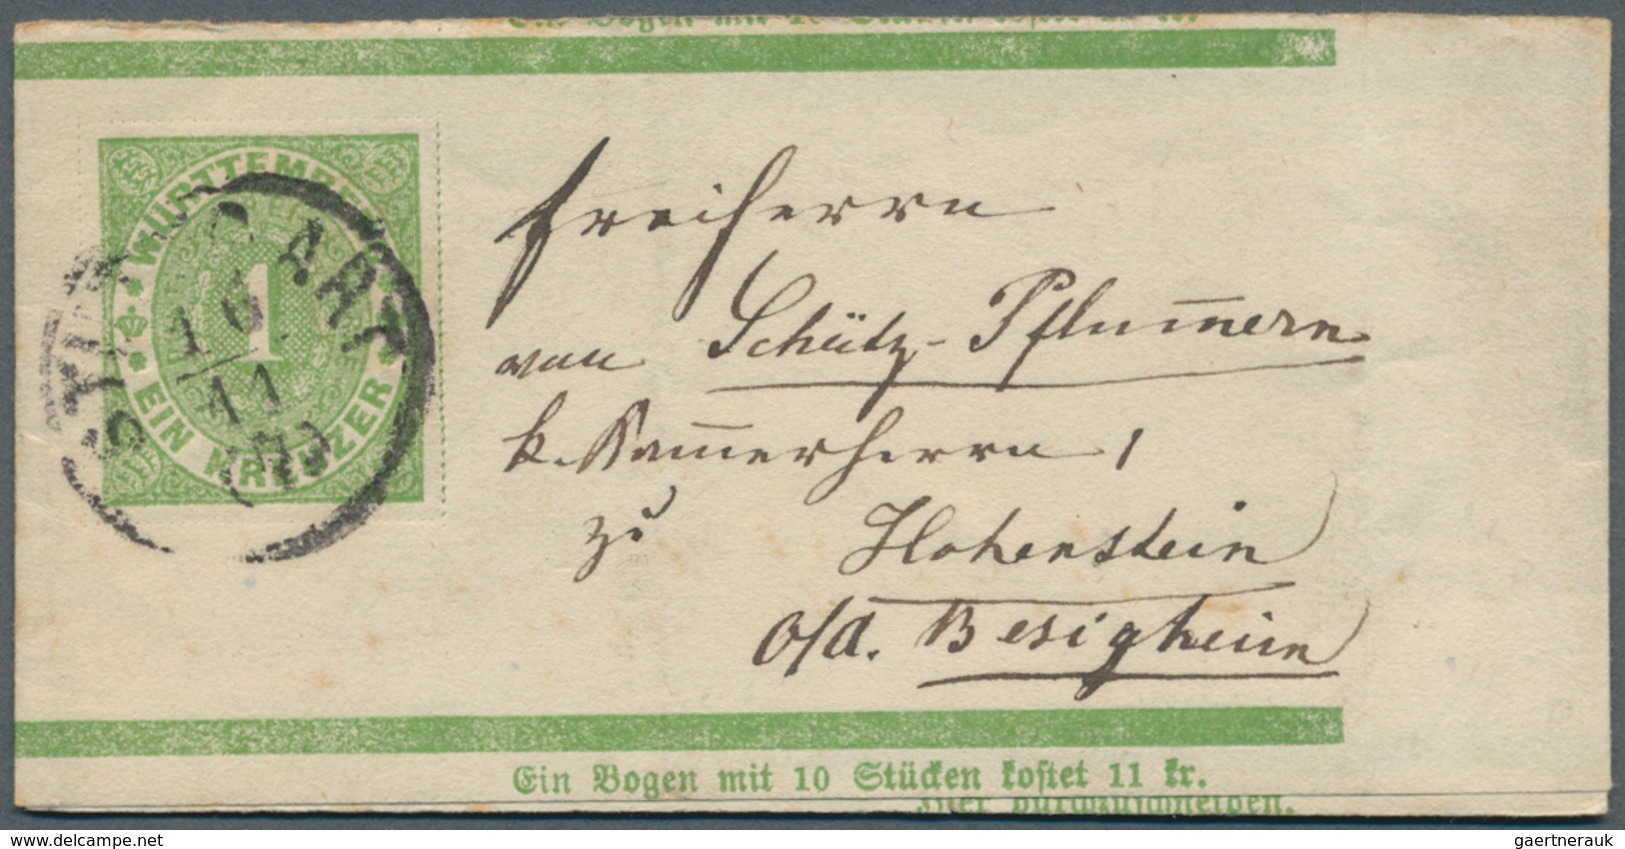 Ein Bogen mit 10 Stücken kostet 11 kr.
WÜRTTEMBERG
1
EIN KREUZER
STUTTGART
16
11
73
Freiherrn
von Schütz-Pflummern
k. Kammerherrn,
zu Hohenstein
o/d. Besigheim
Ein Bogen mit 10 Stücken kostet 11 kr.
Hier durchzuschneiden.
www.delcampe.net
gaertnerauk